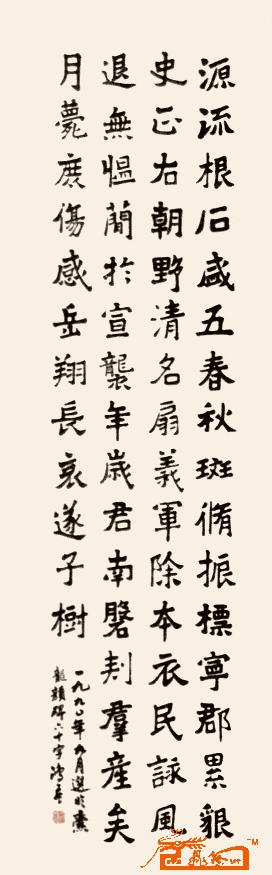 源流根石咸五春秋斑脩振標寧郡累貇
史正右朝野清名扇義軍除本衣民詠風
退無慍蕳於宣襲年歲君南磬羣産矣
月薨庶傷感岳翔長哀遂子樹
一九九〇年九月選於爨
龍顏碑六十字